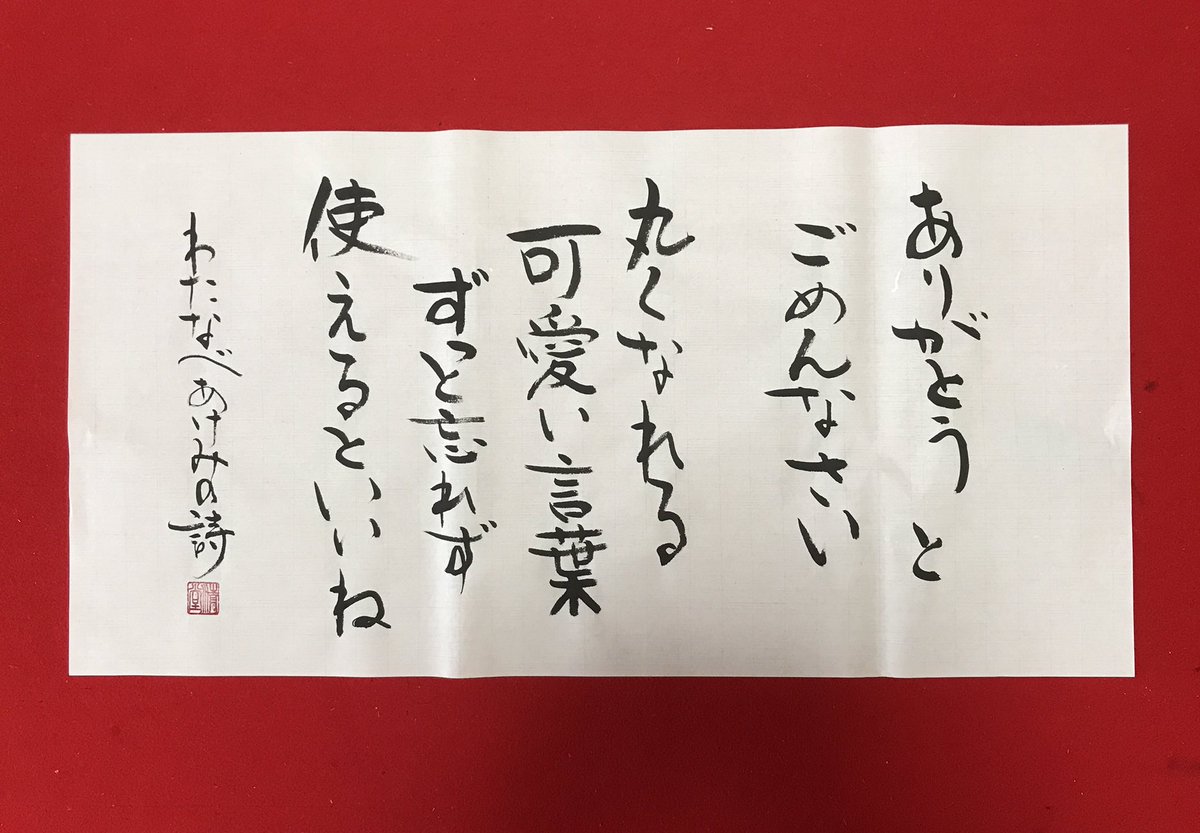 ありがとうと
ごめんなさい
丸くなれる
可愛い言葉
ずっと忘れず
使えるといいね
わたなべあけみの詩